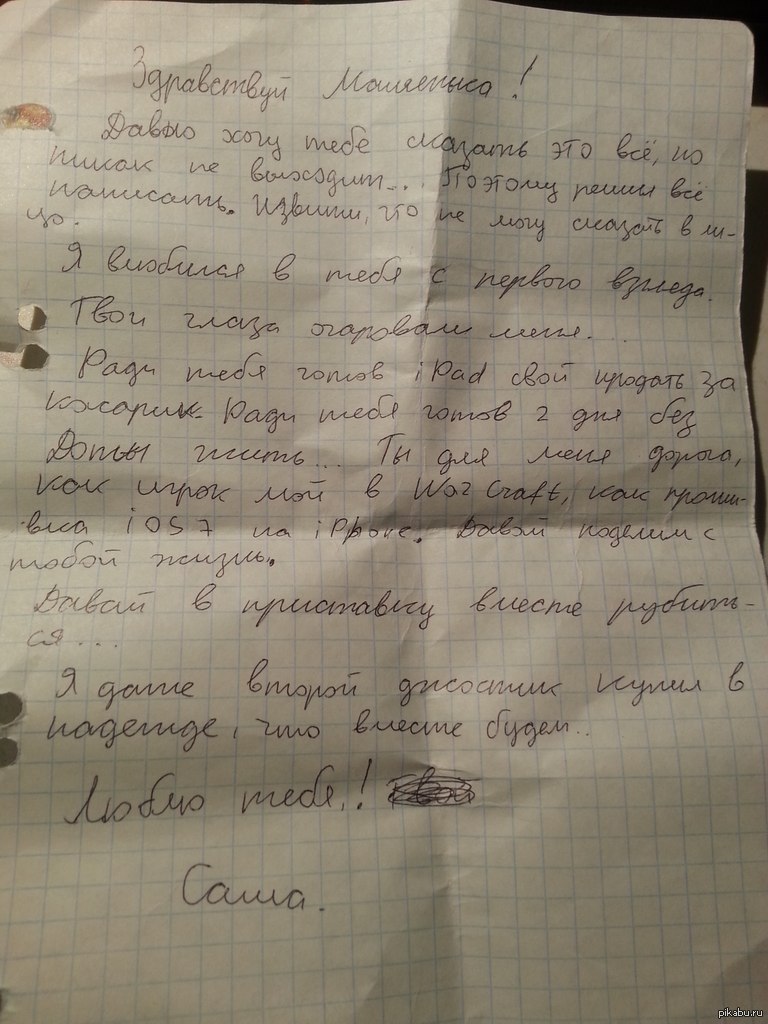 Здравствуй Машенька!
Давно хочу тебе сказать это всё, но
никак не выходит... Поэтому решил всё
написать. Извини, что не могу сказать в ли-
цо.
Я влюбился в тебя с первого взгляда.
Твои глаза очаровали меня...
Ради тебя готов iPad свой продать за
косарик. Ради тебя готов 2 дня без
Доты жить... Ты для меня дорога,
как игрок мой в WarCraft, как проши-
вка iOS7 на iPhone. Давай поделим с
тобой жизнь.
Давай в приставку вместе рубить-
ся...
Я даже второй джостик купил в
надежде, что вместе будем..
Люблю тебя,!
Саша.
pikabu.ru